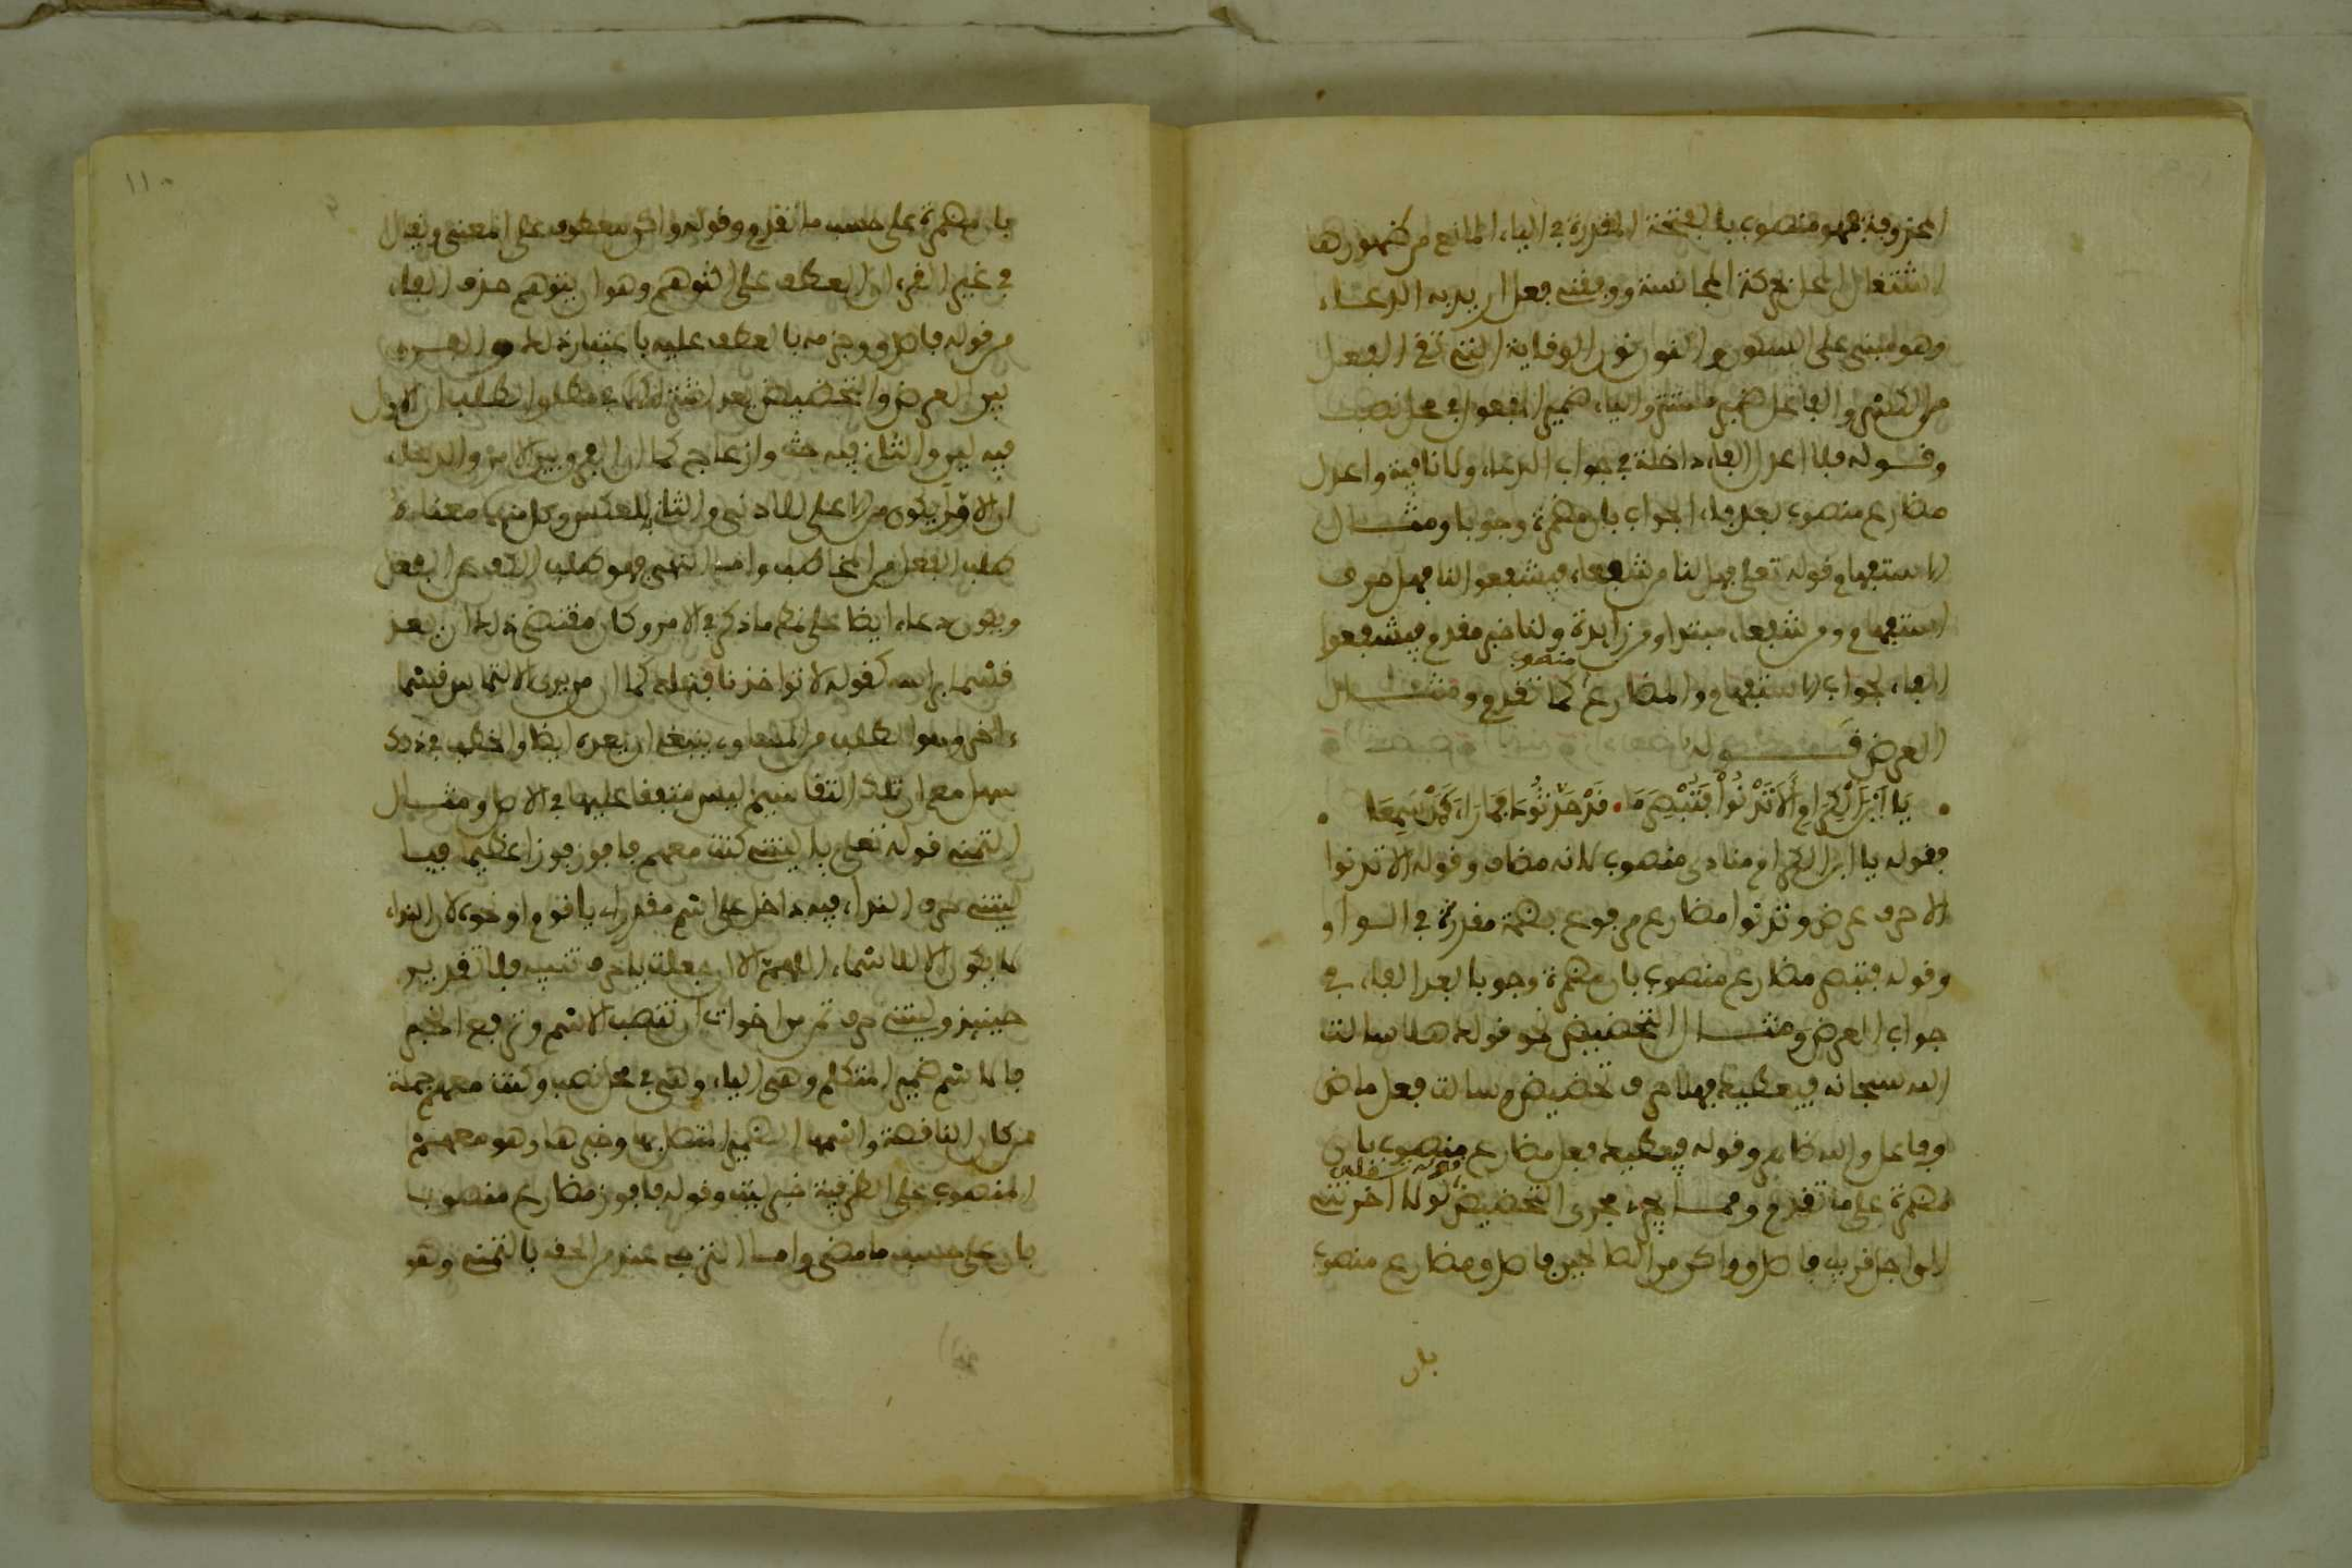 المحذوفة فهو منصوب بالفتحة المقدرة في الياء المانع من ظهورها
اشتغال المحل بحركة المجانسة ووفقني فعل اريد به الدعاء
وهو مبني على السكون والنون نون الوقاية التي تقي الفعل
من الكسر والفاعل ضمير مستتر والياء ضمير المفعول في محل نصب
وقوله فلا اعدل الفاء داخلة في جواب الدعاء ولا نافية واعدل
مضارع منصوب بعد فاء الجواب بان مضمرة وجوبا ومثال
الاستفهام قوله تعلى فهل لنا من شفعاء فيشفعوا لنا فهل حرف
استفهام ومن شفعاء مبتدا ومن زايدة ولنا خبر مقدم فيشفعوا
الفاء لجواب الاستفهام والمضارع منصوب كما تقدم ومثال
العرض قوله
يَا ابْنَ الْكِرَامِ أَلاَ تَدْنُواْ فَتُبْصِرَ مَا • قَدْ حَدَّثُوكَ فَمَا رَاءٍ كَمَنْ سَمِعَا •
فقوله يا ابن الكرام منادى منصوب لانه مضاف وقوله الا تدنوا
الا حرف عرض وتدنوا مضارع مرفوع بضمة مقدرة في الواو
وقوله فتبصر مضارع منصوب بان مضمرة وجوبا بعد الفاء في
جواب العرض ومثال التحضيض نحو قوله هلا سالت
الله سبحانه فيعطيك فهلا حرف تحضيض وسالت فعل ماض
وفاعل والله ظاهر وقوله فيعطيك فعل مضارع منصوب بان
مضمرة على ما تقدم ومما يجري مجرى التحضيض قوله تعلى لولا اخرتني
الى اجل قريب فاصدق واكن من الصالحين فاصدق مضارع منصوب
بان
١١٠
بان مضمرة على حسب ما تقدم وقوله واكن معطوف على المعنى ويقال
في غير القرءان العطف على التوهم وهو ان يتوهم حذف الفاء
من قوله فاصدق وجزمه بالعطف عليه باعتبار ذلك والفرق
بين العرض والتحضيض بعد اشتراكهما في مطلق الطلب ان الاول
فيه لين والثاني فيه حث وازعاج كما ان الفرق بين الامر والدعاء
ان الاول يكون من الاعلى للادنى والثاني بالعكس وكل منهما معناه
طلب الفعل من المخاطب واما النهي فهو طلب الكف عن الفعل
ويكون دعاء ايضا على نحو ما ذكر في الامر وكان مقتضى ذلك ان يعد
قسما براسه كقوله لا تواخذنا فتهلك كما ان من يرى الالتماس قسما
ءاخر وهو الطلب من المساوي ينبغي ان يعده ايضا والخطب في ذلك
سهل مع ان تلك التقاسيم ليس متفقا عليها في الاصل ومثال
التمني قوله تعلى يا ليتني كنت معهم فافوز فوزا عظيما فيا
ليتني حرف النداء فيه داخل على اسم مقدر اي يا قوم او نحوه لان النداء
لا يكون الا للاسماء اللهم الا ان جعلت يا حرف تنبيه فلا تقدير
حينيذ وليتني حرف تمن من اخوات ان تنصب الاسم وترفع الخبر
فالاسم ضمير المتكلم وهي الياء وهي في محل نصب وكنت معهم جملة
من كان الناقصة واسمها الضمير المتصل بها وخبرها وهو معهم
المنصوب على الظرفية خبر ليت وقوله فافوز مضارع منصوب
بان على حسب ما مضى واما الترجي عند من الحقه بالتمني وهو